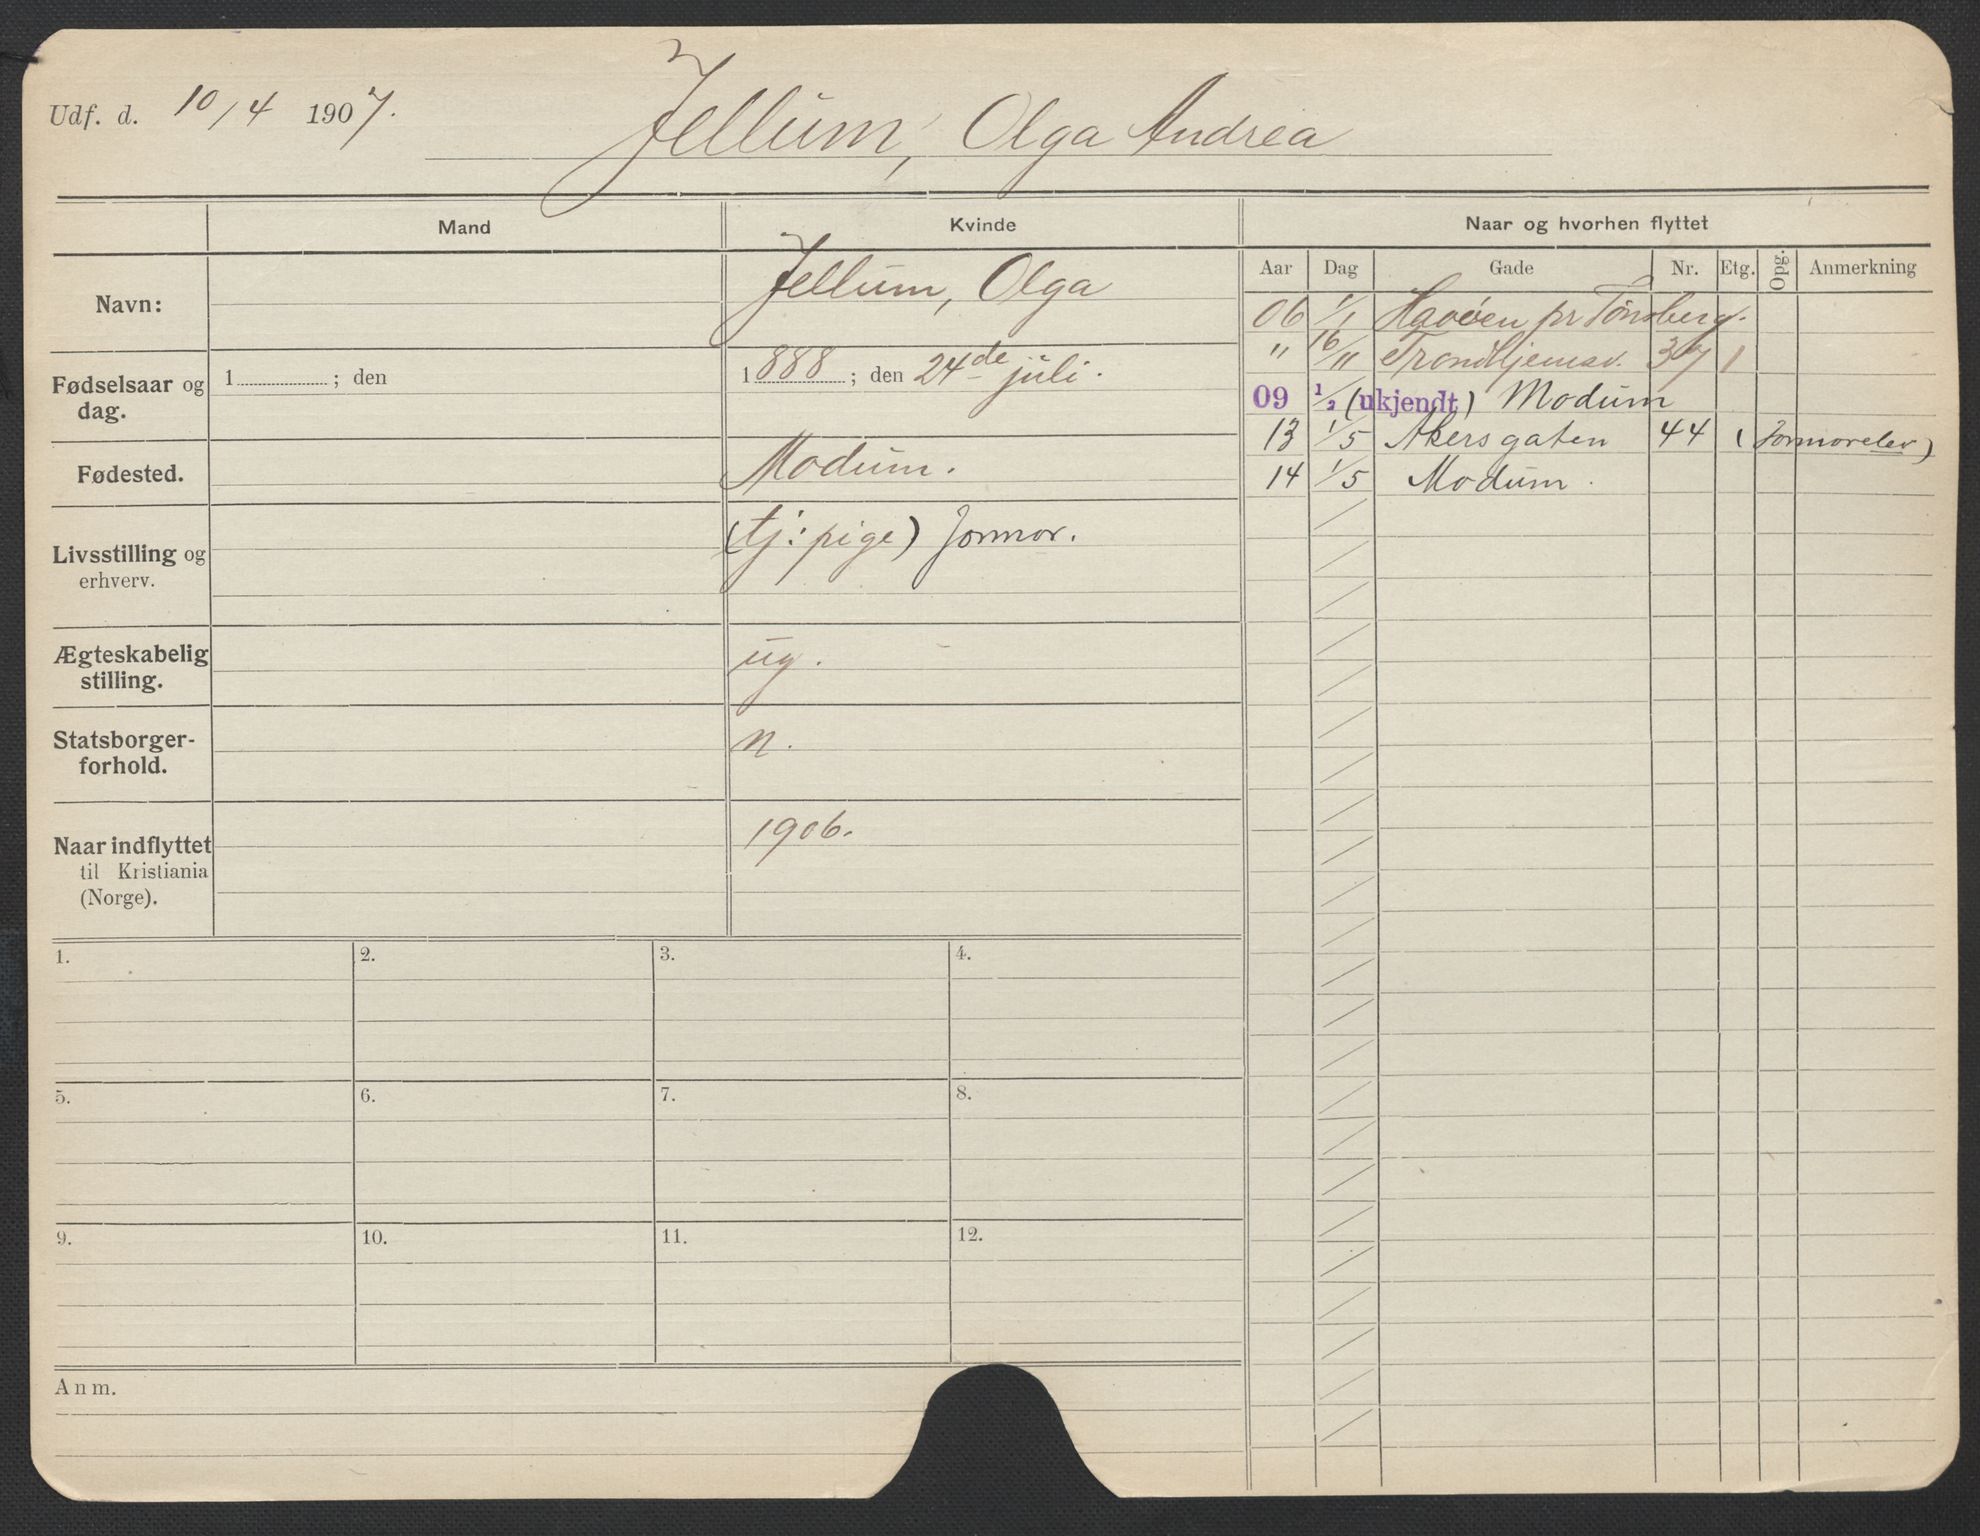 Udf. d. 10/4 1907.
Jellum, Olga Andrea
Mand
Kvinde
Naar og hvorhen flyttet
Aar Dag Gade Nr. Etg. Opg. Anmerkning
Navn:
Jellum, Olga
Fødselsaar og dag.
1 ; den
1888 ; den 24de juli.
Fødested.
Modum.
Livsstilling og erhverv.
(tj: pige) Jormor.
Ægteskabelig stilling.
ug.
Statsborger-forhold.
n.
Naar indflyttet til Kristiania (Norge).
1906.
06 1/1 Havøen pr Tønsberg.
" 16/11 Trondhjemsv. 37 1
09 1/2 (ukjendt) Modum
13 1/5 Akersgaten 44 (Jormorelev)
14 1/5 Modum.
1. 2. 3. 4.
5. 6. 7. 8.
9. 10. 11. 12.
Anm.